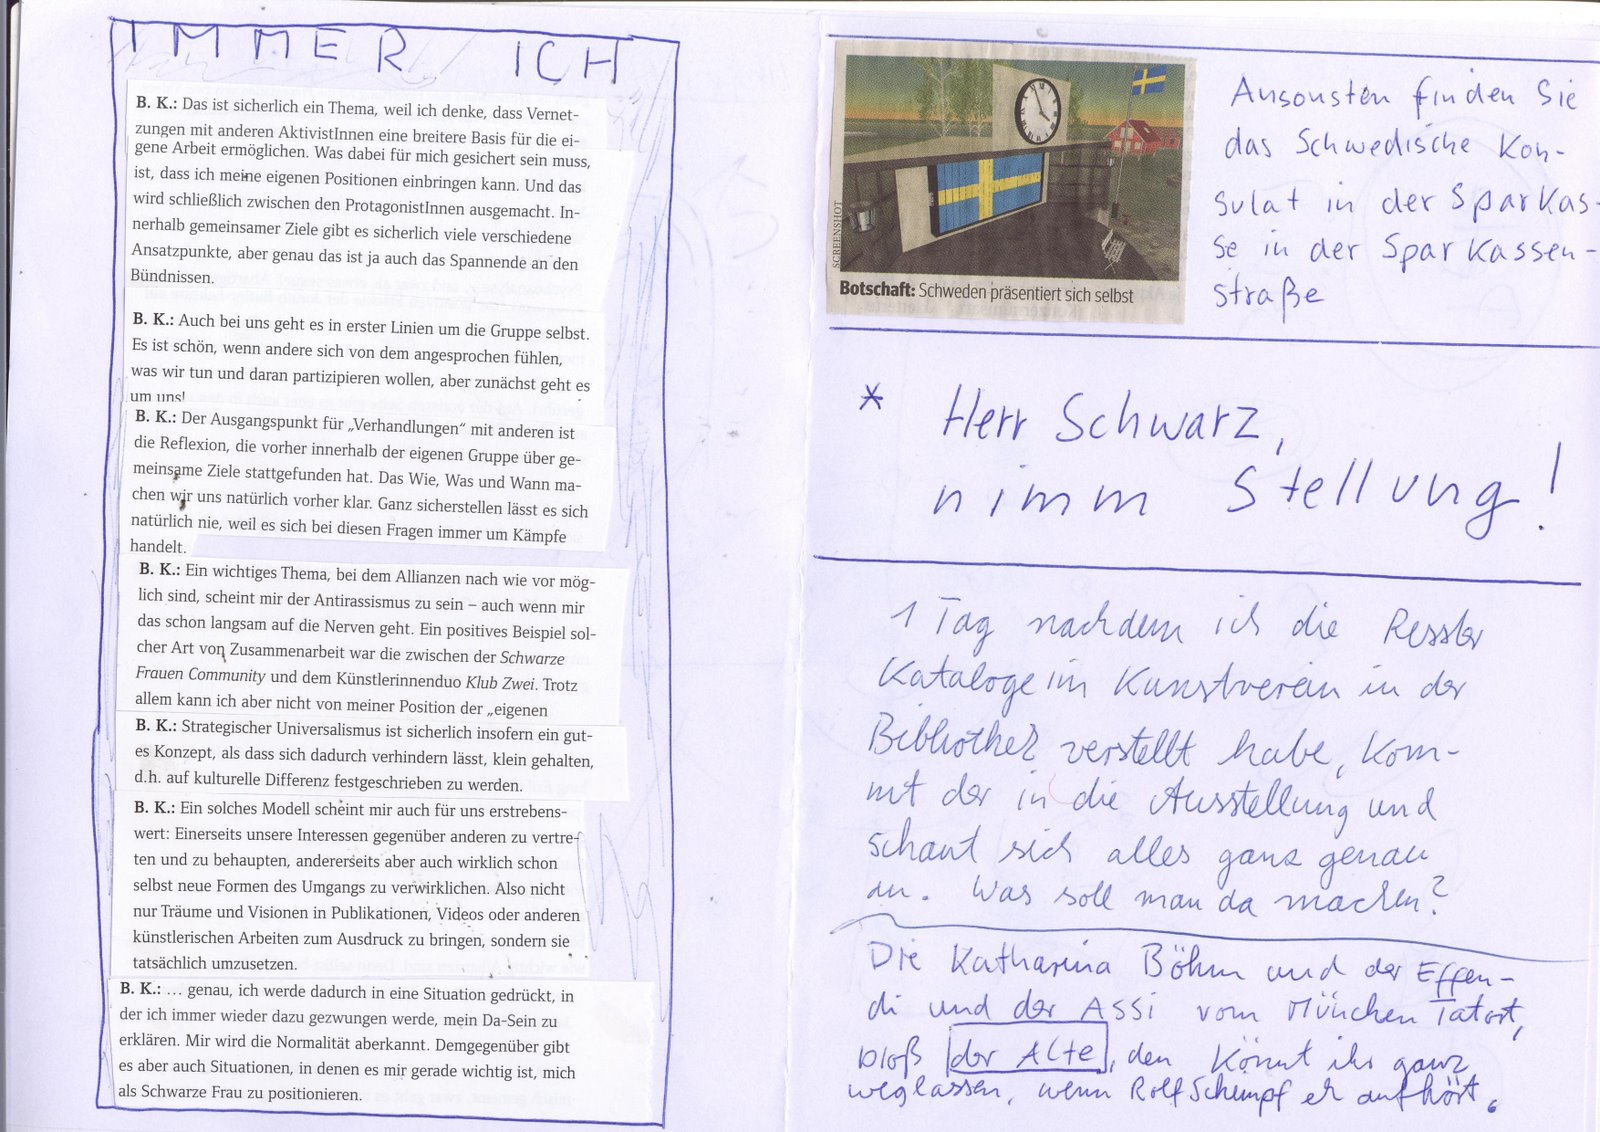 IMMER ICH
B. K.: Das ist sicherlich ein Thema, weil ich denke, dass Vernet-
zungen mit anderen AktivistInnen eine breitere Basis für die ei-
gene Arbeit ermöglichen. Was dabei für mich gesichert sein muss,
ist, dass ich meine eigenen Positionen einbringen kann. Und das
wird schließlich zwischen den ProtagonistInnen ausgemacht. In-
nerhalb gemeinsamer Ziele gibt es sicherlich viele verschiedene
Ansatzpunkte, aber genau das ist ja auch das Spannende an den
Bündnissen.
B. K.: Auch bei uns geht es in erster Linien um die Gruppe selbst.
Es ist schön, wenn andere sich von dem angesprochen fühlen,
was wir tun und daran partizipieren wollen, aber zunächst geht es
um uns!
B. K.: Der Ausgangspunkt für „Verhandlungen“ mit anderen ist
die Reflexion, die vorher innerhalb der eigenen Gruppe über ge-
meinsame Ziele stattgefunden hat. Das Wie, Was und Wann ma-
chen wir uns natürlich vorher klar. Ganz sicherstellen lässt es sich
natürlich nie, weil es sich bei diesen Fragen immer um Kämpfe
handelt.
B. K.: Ein wichtiges Thema, bei dem Allianzen nach wie vor mög-
lich sind, scheint mir der Antirassismus zu sein – auch wenn mir
das schon langsam auf die Nerven geht. Ein positives Beispiel sol-
cher Art von Zusammenarbeit war die zwischen der Schwarze
Frauen Community und dem Künstlerinnenduo Klub Zwei. Trotz
allem kann ich aber nicht von meiner Position der „eigenen
B. K.: Strategischer Universalismus ist sicherlich insofern ein gut-
es Konzept, als dass sich dadurch verhindern lässt, klein gehalten,
d.h. auf kulturelle Differenz festgeschrieben zu werden.
B. K.: Ein solches Modell scheint mir auch für uns erstrebens-
wert: Einerseits unsere Interessen gegenüber anderen zu vertre-
ten und zu behaupten, andererseits aber auch wirklich schon
selbst neue Formen des Umgangs zu verwirklichen. Also nicht
nur Träume und Visionen in Publikationen, Videos oder anderen
künstlerischen Arbeiten zum Ausdruck zu bringen, sondern sie
tatsächlich umzusetzen.
B. K.: … genau, ich werde dadurch in eine Situation gedrückt, in
der ich immer wieder dazu gezwungen werde, mein Da-Sein zu
erklären. Mir wird die Normalität aberkannt. Demgegenüber gibt
es aber auch Situationen, in denen es mir gerade wichtig ist, mich
als Schwarze Frau zu positionieren.
SCREENSHOT
Botschaft: Schweden präsentiert sich selbst
Ansonsten finden Sie
das Schwedische Kon-
sulat in der Sparkas-
se in der Sparkassen-
straße
* Herr Schwarz,
nimm Stellung!
1 Tag nachdem ich die Ressler
Kataloge im Kunstverein in der
Bibliothek verstellt habe, kom-
mt der in die Ausstellung und
schaut sich alles ganz genau
an. Was soll man da machen?
Die Katharina Böhm und der Effen-
di und der Assi vom München Tatort,
bloß der Alte, den könnt ihr ganz
weglassen, wenn Rolf Schimpf eh aufhört.